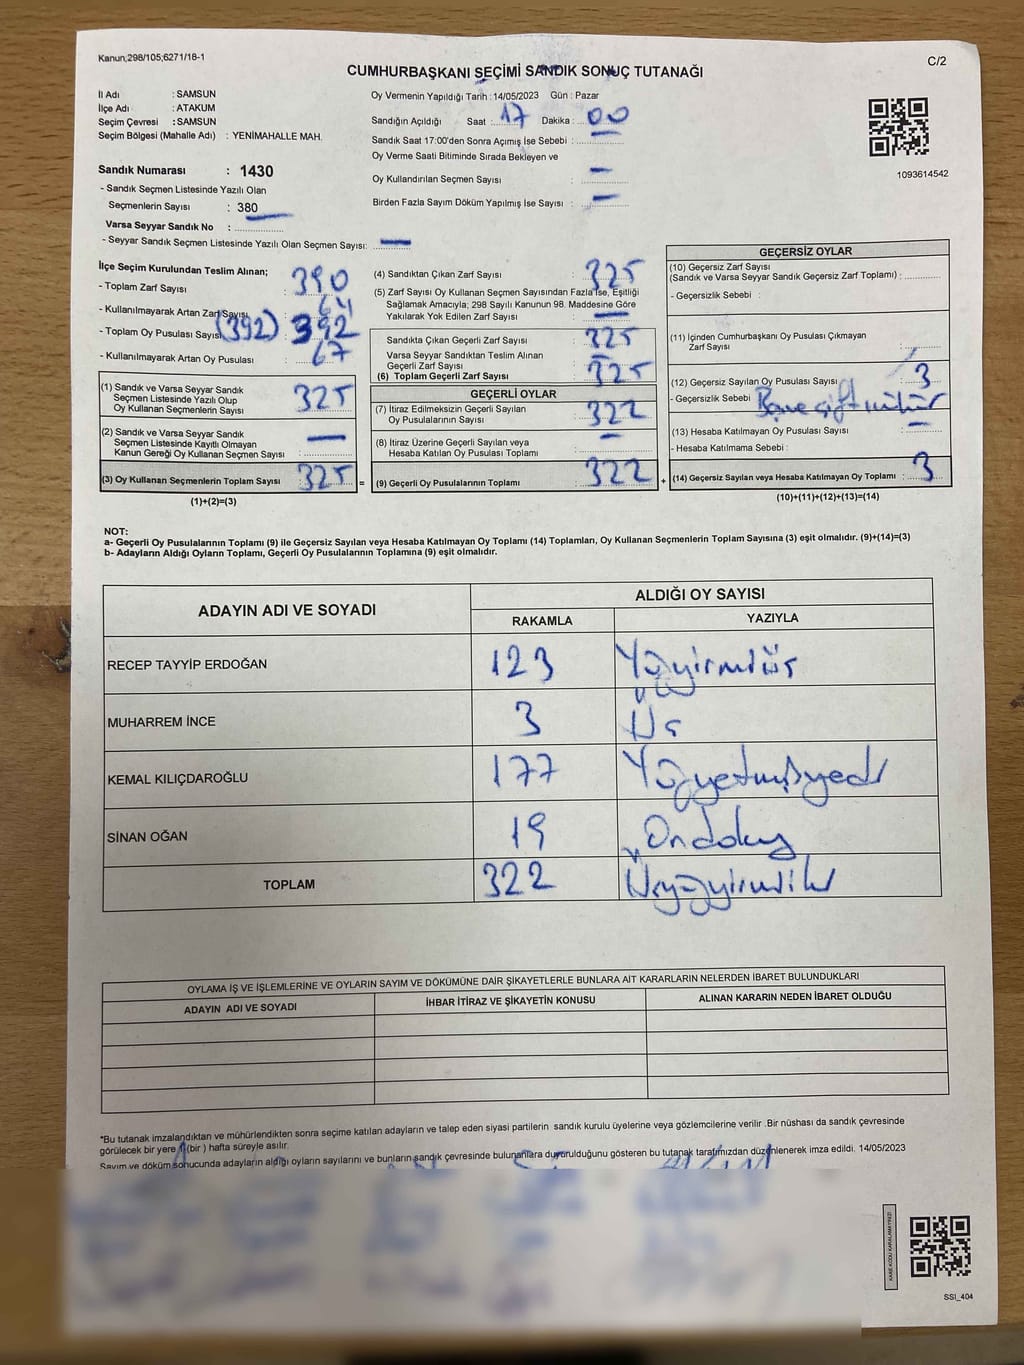 Kanun;298/105;6271/18-1
C/2
CUMHURBAŞKANI SEÇİMİ SANDIK SONUÇ TUTANAĞI
İl Adı : SAMSUN
İlçe Adı : ATAKUM
Seçim Çevresi : SAMSUN
Seçim Bölgesi (Mahalle Adı) : YENİMAHALLE MAH.
Sandık Numarası : 1430
- Sandık Seçmen Listesinde Yazılı Olan
Seçmenlerin Sayısı : 380
Varsa Seyyar Sandık No :
- Seyyar Sandık Seçmen Listesinde Yazılı Olan Seçmen Sayısı: —
Oy Vermenin Yapıldığı Tarih :14/05/2023 Gün : Pazar
Sandığın Açıldığı Saat : 17 Dakika : 00
Sandık Saat 17:00'den Sonra Açımış İse Sebebi :
Oy Verme Saati Bitiminde Sırada Bekleyen ve
Oy Kullandırılan Seçmen Sayısı : —
Birden Fazla Sayım Döküm Yapılmış İse Sayısı : —
1093614542
İlçe Seçim Kurulundan Teslim Alınan;
- Toplam Zarf Sayısı : 390
- Kullanılmayarak Artan Zarf Sayısı : 64
- Toplam Oy Pusulası Sayısı (392) 392
- Kullanılmayarak Artan Oy Pusulası : 67
(1) Sandık ve Varsa Seyyar Sandık
Seçmen Listesinde Yazılı Olup
Oy Kullanan Seçmenlerin Sayısı : 325
(2) Sandık ve Varsa Seyyar Sandık
Seçmen Listesinde Kayıtlı Olmayan
Kanun Gereği Oy Kullanan Seçmen Sayısı : —
(3) Oy Kullanan Seçmenlerin Toplam Sayısı : 325 =
(1)+(2)=(3)
(4) Sandıktan Çıkan Zarf Sayısı : 325
(5) Zarf Sayısı Oy Kullanan Seçmen Sayısından Fazla İse, Eşitliği
Sağlamak Amacıyla; 298 Sayılı Kanunun 98. Maddesine Göre
Yakılarak Yok Edilen Zarf Sayısı : —
Sandıkta Çıkan Geçerli Zarf Sayısı : 325
Varsa Seyyar Sandıktan Teslim Alınan
Geçerli Zarf Sayısı : —
(6) Toplam Geçerli Zarf Sayısı : 325
GEÇERLİ OYLAR
(7) İtiraz Edilmeksizin Geçerli Sayılan
Oy Pusulalarının Sayısı : 322
(8) İtiraz Üzerine Geçerli Sayılan veya
Hesaba Katılan Oy Pusulası Toplamı : —
(9) Geçerli Oy Pusulalarının Toplamı : 322 +
GEÇERSİZ OYLAR
(10) Geçersiz Zarf Sayısı
(Sandık ve Varsa Seyyar Sandık Geçersiz Zarf Toplamı) :
- Geçersizlik Sebebi :
(11) İçinden Cumhurbaşkanı Oy Pusulası Çıkmayan
Zarf Sayısı :
(12) Geçersiz Sayılan Oy Pusulası Sayısı : 3
- Geçersizlik Sebebi : çift mühür
(13) Hesaba Katılmayan Oy Pusulası Sayısı : —
- Hesaba Katılmama Sebebi :
(14) Geçersiz Sayılan veya Hesaba Katılmayan Oy Toplamı : 3
(10)+(11)+(12)+(13)=(14)
NOT:
a- Geçerli Oy Pusulalarının Toplamı (9) ile Geçersiz Sayılan veya Hesaba Katılmayan Oy Toplamı (14) Toplamları, Oy Kullanan Seçmenlerin Toplam Sayısına (3) eşit olmalıdır. (9)+(14)=(3)
b- Adayların Aldığı Oyların Toplamı, Geçerli Oy Pusulalarının Toplamına (9) eşit olmalıdır.
ADAYIN ADI VE SOYADI ALDIĞI OY SAYISI
RAKAMLA YAZIYLA
RECEP TAYYİP ERDOĞAN 123 Yüzyirmiüç
MUHARREM İNCE 3 Üç
KEMAL KILIÇDAROĞLU 177 Yüzyetmişyedi
SİNAN OĞAN 19 Ondokuz
TOPLAM 322 Üçyüzyirmiiki
OYLAMA İŞ VE İŞLEMLERİNE VE OYLARIN SAYIM VE DÖKÜMÜNE DAİR ŞİKAYETLERLE BUNLARA AİT KARARLARIN NELERDEN İBARET BULUNDUKLARI
ADAYIN ADI VE SOYADI İHBAR İTİRAZ VE ŞİKAYETİN KONUSU ALINAN KARARIN NEDEN İBARET OLDUĞU
*Bu tutanak imzalandıktan ve mühürlendikten sonra seçime katılan adayların ve talep eden siyasi partilerin sandık kurulu üyelerine veya gözlemcilerine verilir .Bir nüshası da sandık çevresinde
görülecek bir yere 1 (bir ) hafta süreyle asılır.
Sayım ve döküm sonucunda adayların aldığı oyların sayılarını ve bunların sandık çevresinde bulunanlara duyurulduğunu gösteren bu tutanak tarafımızdan düzenlenerek imza edildi. 14/05/2023
SSI_404